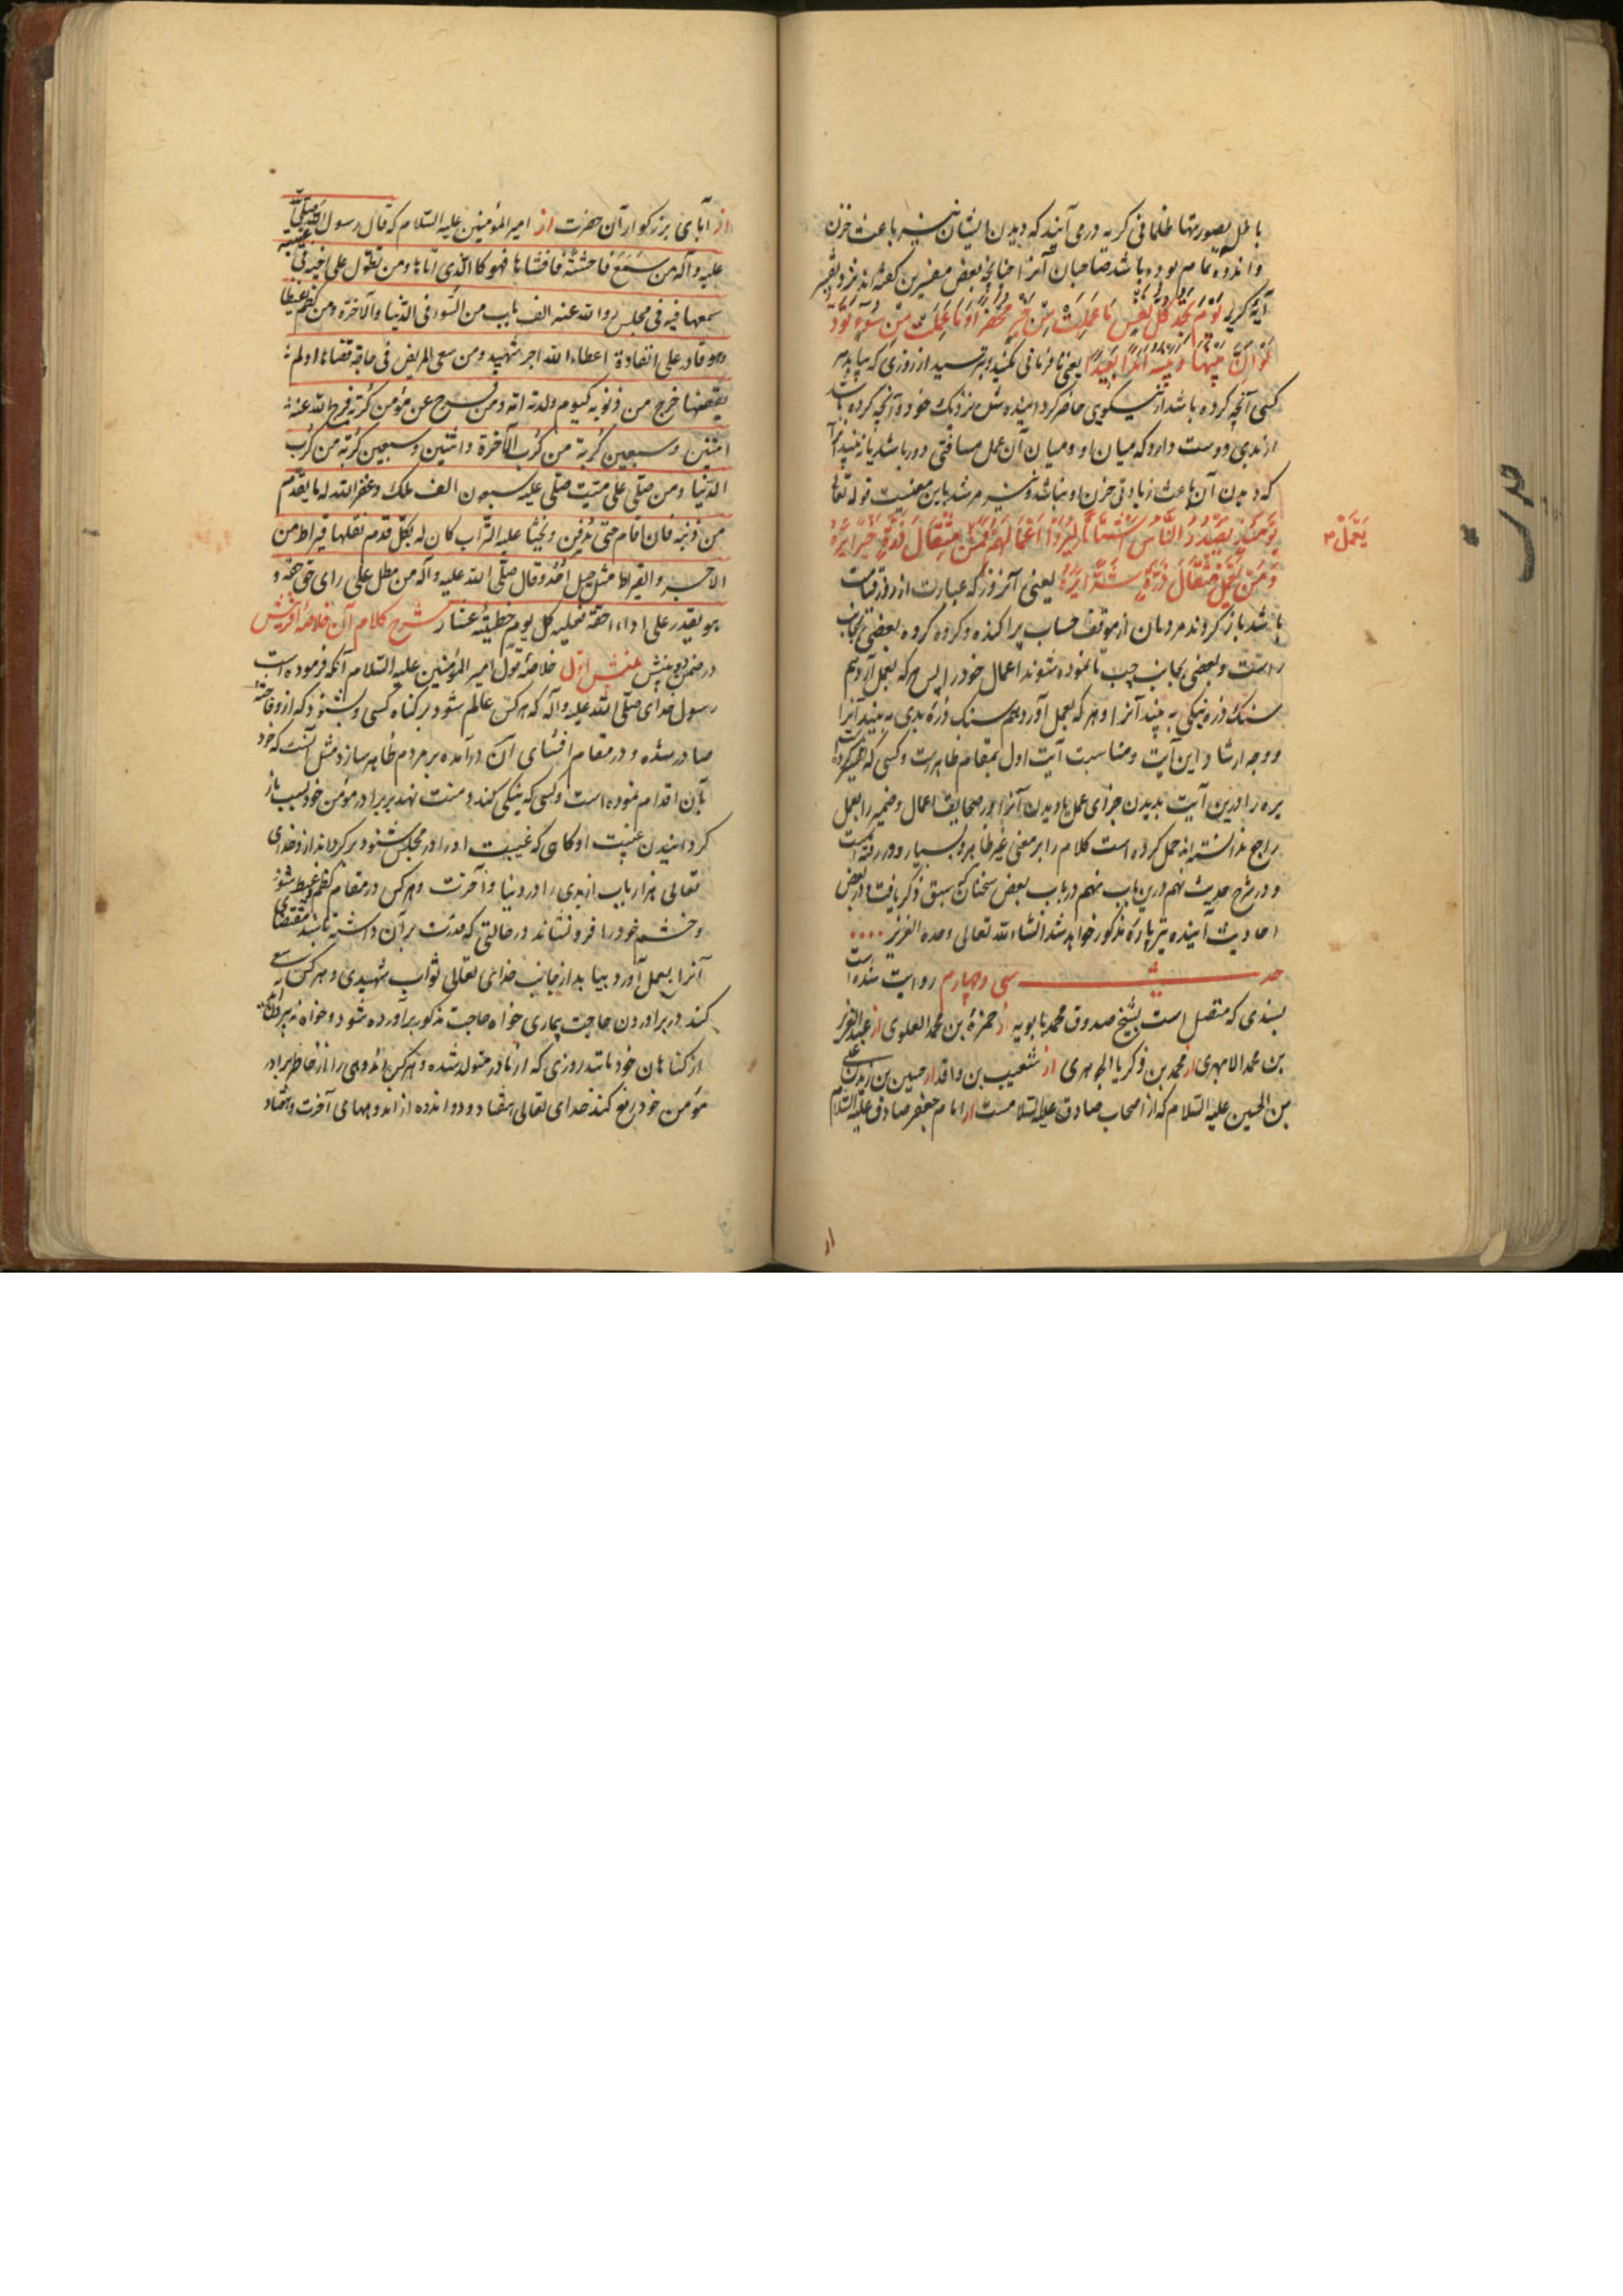 باطل بصورتهای ظلمانی کریه در می آیند که دیدن ایشان نیز باعث حزن
و اندوه تمام بوده باشد صاحبان آنرا چنانچه بعض مفسرین گفته اند نزد تفسیر
آیه کریمه یَوْمَ تَجِدُ كُلُّ نَفْسٍ مَا عَمِلَتْ مِنْ خَيْرٍ مُحْضَرًا وَمَا عَمِلَتْ مِنْ سُوءٍ تَوَدُّ
لَوْ أَنَّ بَيْنَهَا وَبَيْنَهُ أَمَدًا بَعِيدًا یعنی نافرمانی مکنید و بترسید از روزی که بیابد هر
کسی آنچه کرده باشد از نیکویی حاضر کردانیده شده نزدیک خود و آنچه کرده باشد
از بدی دوست دارد که میان او و میان آن عمل مسافتی دور باشد تا نه بیند آنرا
که دیدن آن باعث زیادتی حزن او نباشد و نیز مرشد باین معنیست قوله تعالی
يَوْمَئِذٍ يَصْدُرُ النَّاسُ أَشْتَاتًا لِيُرَوْا أَعْمَالَهُمْ فَمَنْ مِثْقَالَ ذَرَّةٍ خَيْرًا يَرَهُ
يَعْمَلْ
وَمَنْ يَعْمَلْ مِثْقَالَ ذَرَّةٍ شَرًّا يَرَهُ یعنی آنروز که عبارت از روز قیامت
باشد باز کردند مردمان از موقف حساب پراکنده و کروه کروه بعضی بجانب
راست و بعضی بجانب چپ تا نموده شوند اعمال خود را پس هر که بعمل آرد هم
سنک ذره نیکی به بیند آنرا و هر که بعمل آورد هم سنک ذره بدی به بیند آنرا
و وجه ارشاد این آیت و مناسبت آیت اول بمقام ظاهرست و کسی که
یره را درین آیت بدیدن جزای عمل یا دیدن آنرا در صحایف اعمال و ضمیر را بعمل
راجع ندانسته حمل کرده است کلام را بر معنی غیر ظاهر و بسیار دور رفته است
و در شرح حدیث نهم درین باب نهم در باب بعض سخنان سبق ذکر یافت و در بعض
احادیث آینده نیز پاره مذکور خواهد شد انشاء الله تعالی وحده العزیز
حدیث سی و چهارم روایت شده است
بسندی که متصل است بشیخ صدوق محمد بابویه از حمزة بن محمد العلوی از عبد العزیز
بن محمد الابهری از محمد بن زکریا الجوهری از شعیب بن واقد از حسین بن زید بن علی
بن الحسین علیه السلام که از اصحاب صادق علیه السلامست از امام جعفر صادق علیه السلام
از آبای بزرکوار آن حضرت از امیر المؤمنین علیه السلام که قال رسول الله صلی الله
علیه و آله من سَمِعَ فاحشةً فافشاها فهو كالذی اتاها و من تطول علی اخیه فی غیبة
سمعها فیه فی مجلس رد الله عنه الف باب من السوء فی الدنیا و الآخرة و من کظم غیظا
و هو قادر علی انفاذه اعطاه الله اجر شهید و من سعی لمریض فی حاجة قضاها او لم
یقضها خرج من ذنوبه کیوم ولدته امه و من فرج عن مؤمن کربة فرج الله عنه
اثنتین و سبعین کربة من کرب الآخرة و اثنتین و سبعین کربة من کرب
الدنیا و من صلی علی میت صلی علیه سبعون الف ملک و غفر الله له ما تقدم
من ذنبه فان اقام حتی یدفن و یحثا علیه التراب کان له بکل قدم نقلها قیراط من
الاجر و القیراط مثل جبل احد و قال صلی الله علیه و آله من مطل علی ذی حق حقه و
هو یقدر علی اداء حقه فعلیه کل یوم خطیئة عشار شرح کلام آن خلاصه آفرینش
در ضمن دو بینش بینش اول خلاصه قول امیر المؤمنین علیه السلام آنکه فرموده است
رسول خدای صلی الله علیه و آله که هر کس عالم شود بر کناه کسی و بشنود که از و فاحشه
صادر شده و در مقام افشای آن در آمده بر مردم ظاهر سازد مثل آنست که خود
بآن اقدام نموده است و کسی که نیکی کند و منت نهد بر برادر مؤمن خود بسبب باز
کردانیدن غیبت او کاهی که غیبت او را در مجلس شنود بر کرداند از و خدای
تعالی هزار باب از بدی را در دنیا و آخرت و هر کس در مقام کظم غیظ شود
و خشم خود را فرو نشاند در حالتی که قدرت بر آن داشته باشد مقتضای
آنرا بعمل آورد بیابد از جانب خدای تعالی ثواب شهیدی و هر کس سعی
کند در بر آوردن حاجت بیماری خواه حاجت مذکور بر آورده شود و خواه نه بیرون
از کناهان خود مانند روزی که از مادر متولد شده و هر کس اندوهی را از خاطر برادر
مؤمن خود رفع کند خدای تعالی هفتاد و دو اندوه از اندوههای آخرت و هفتاد